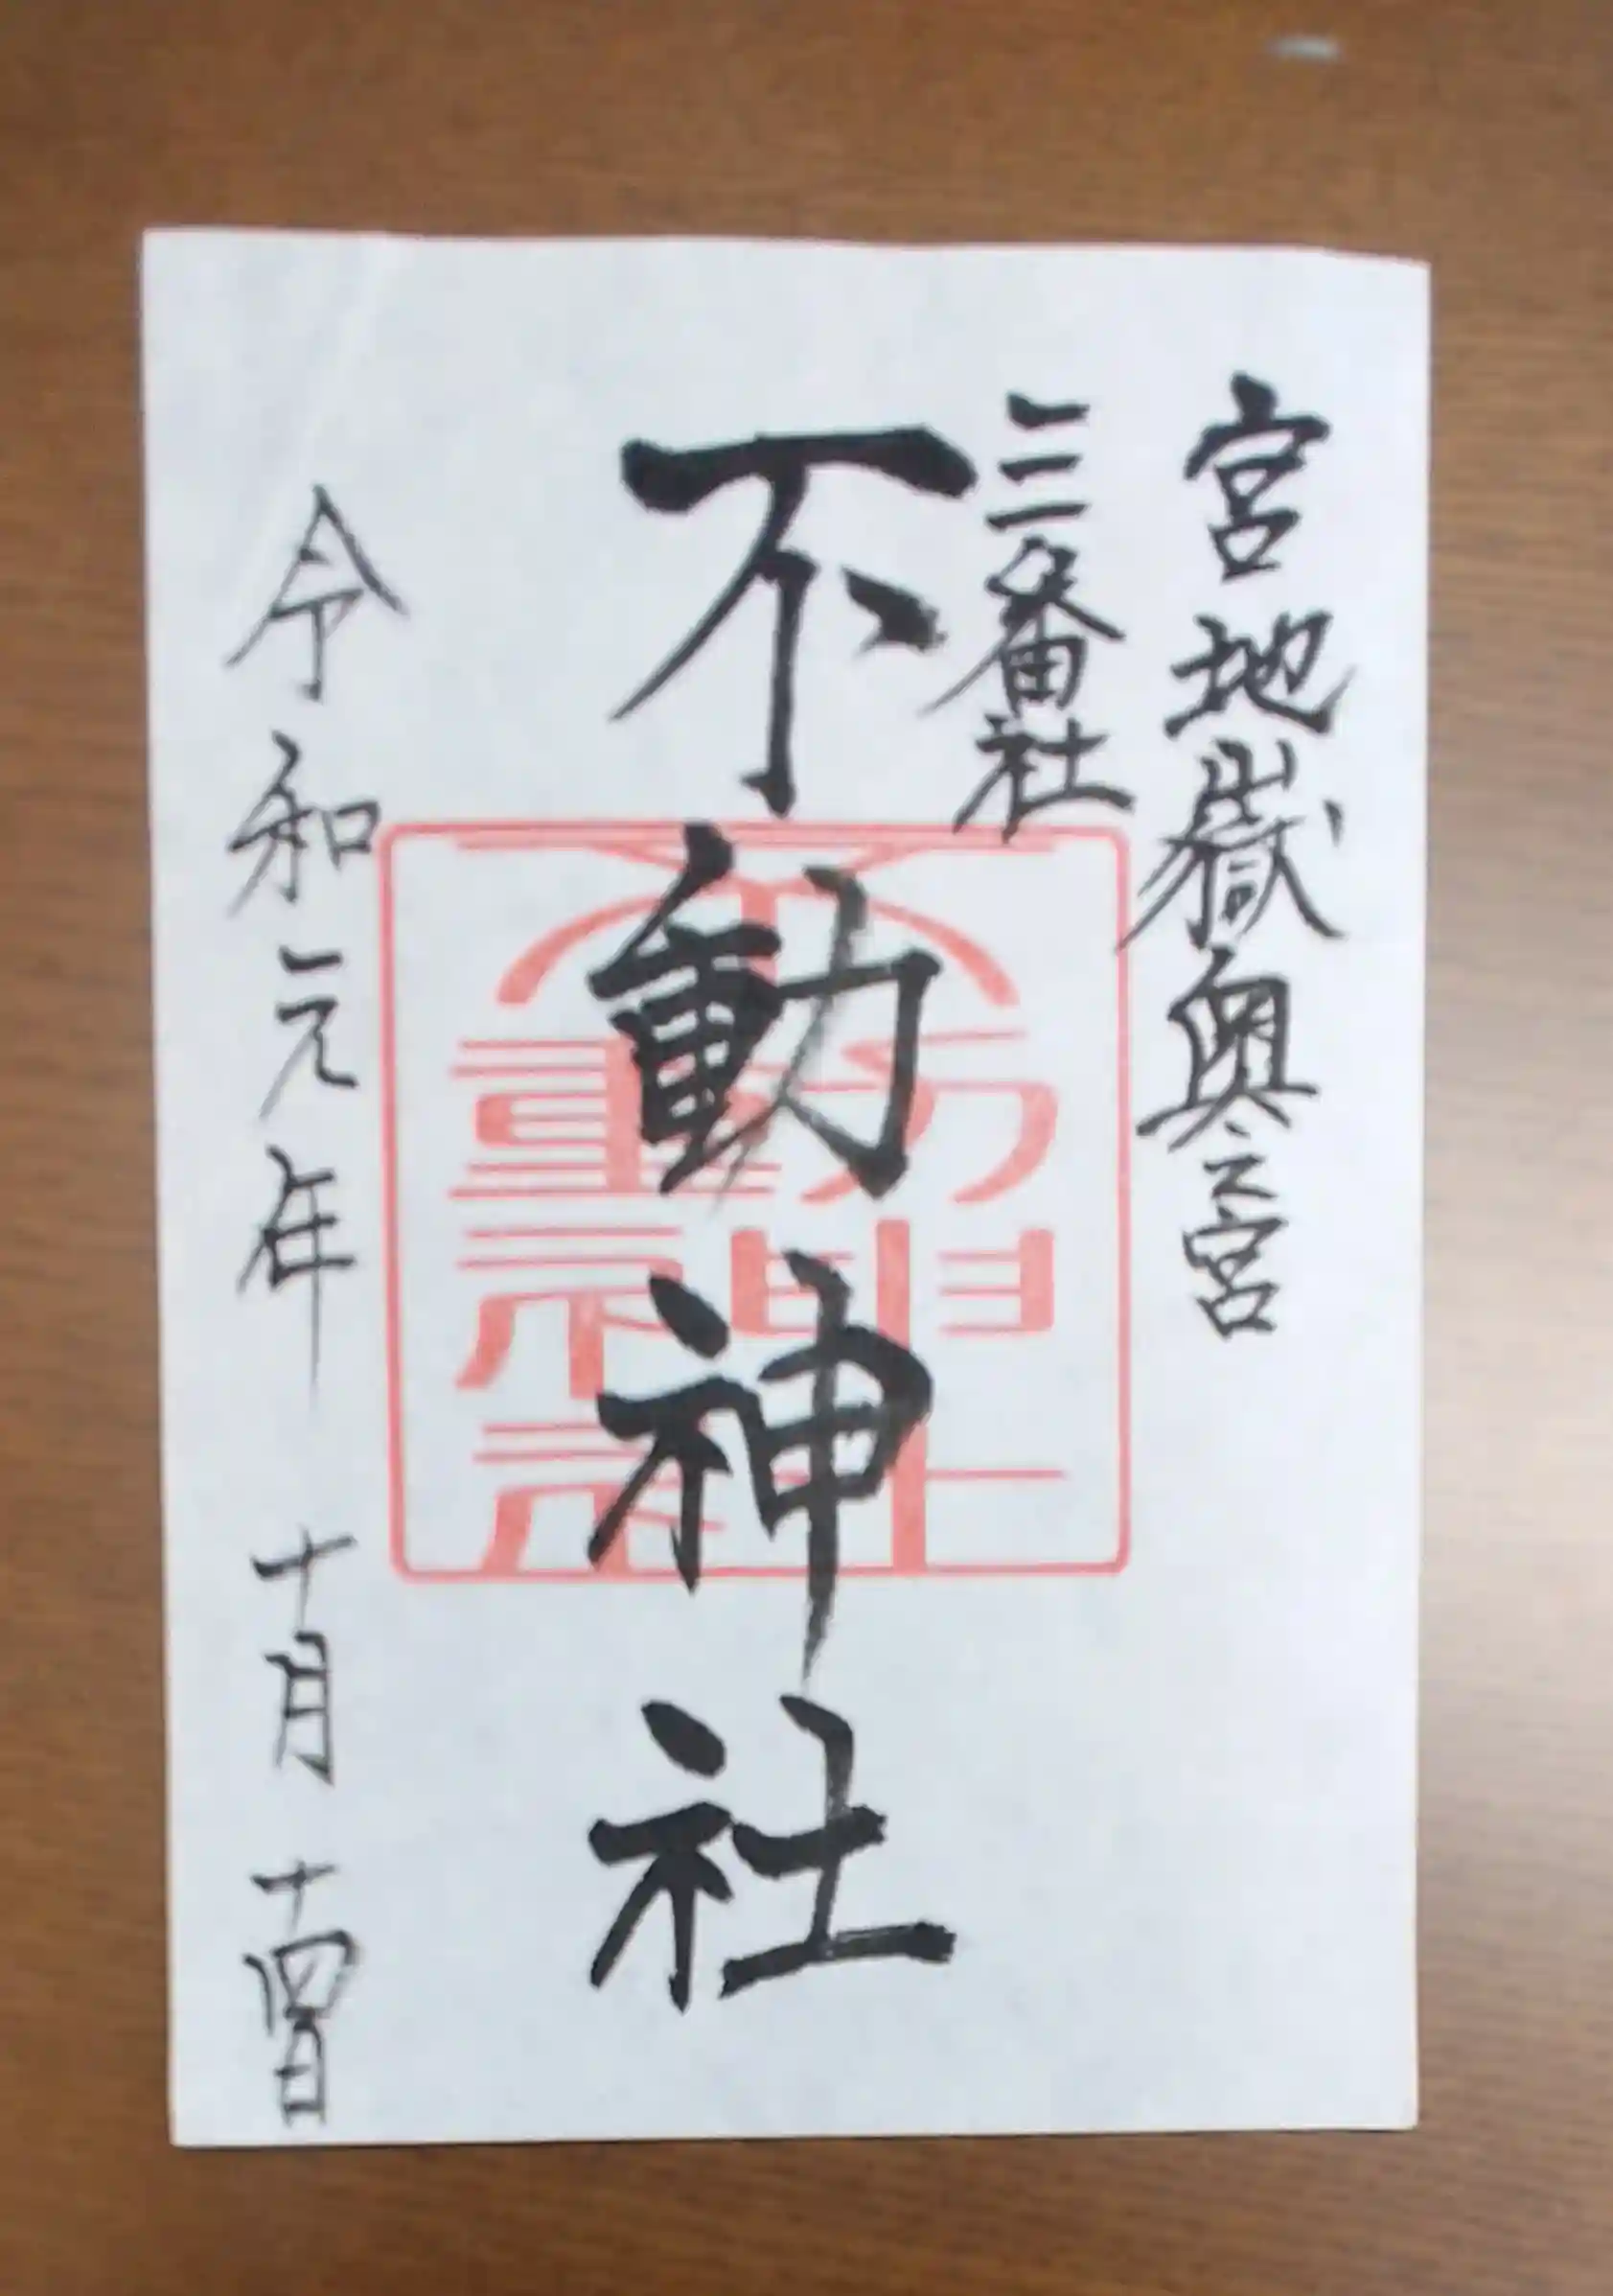 宮地嶽奥之宮
三番社
不動神社
令和元年 十月 十四日
不動神社